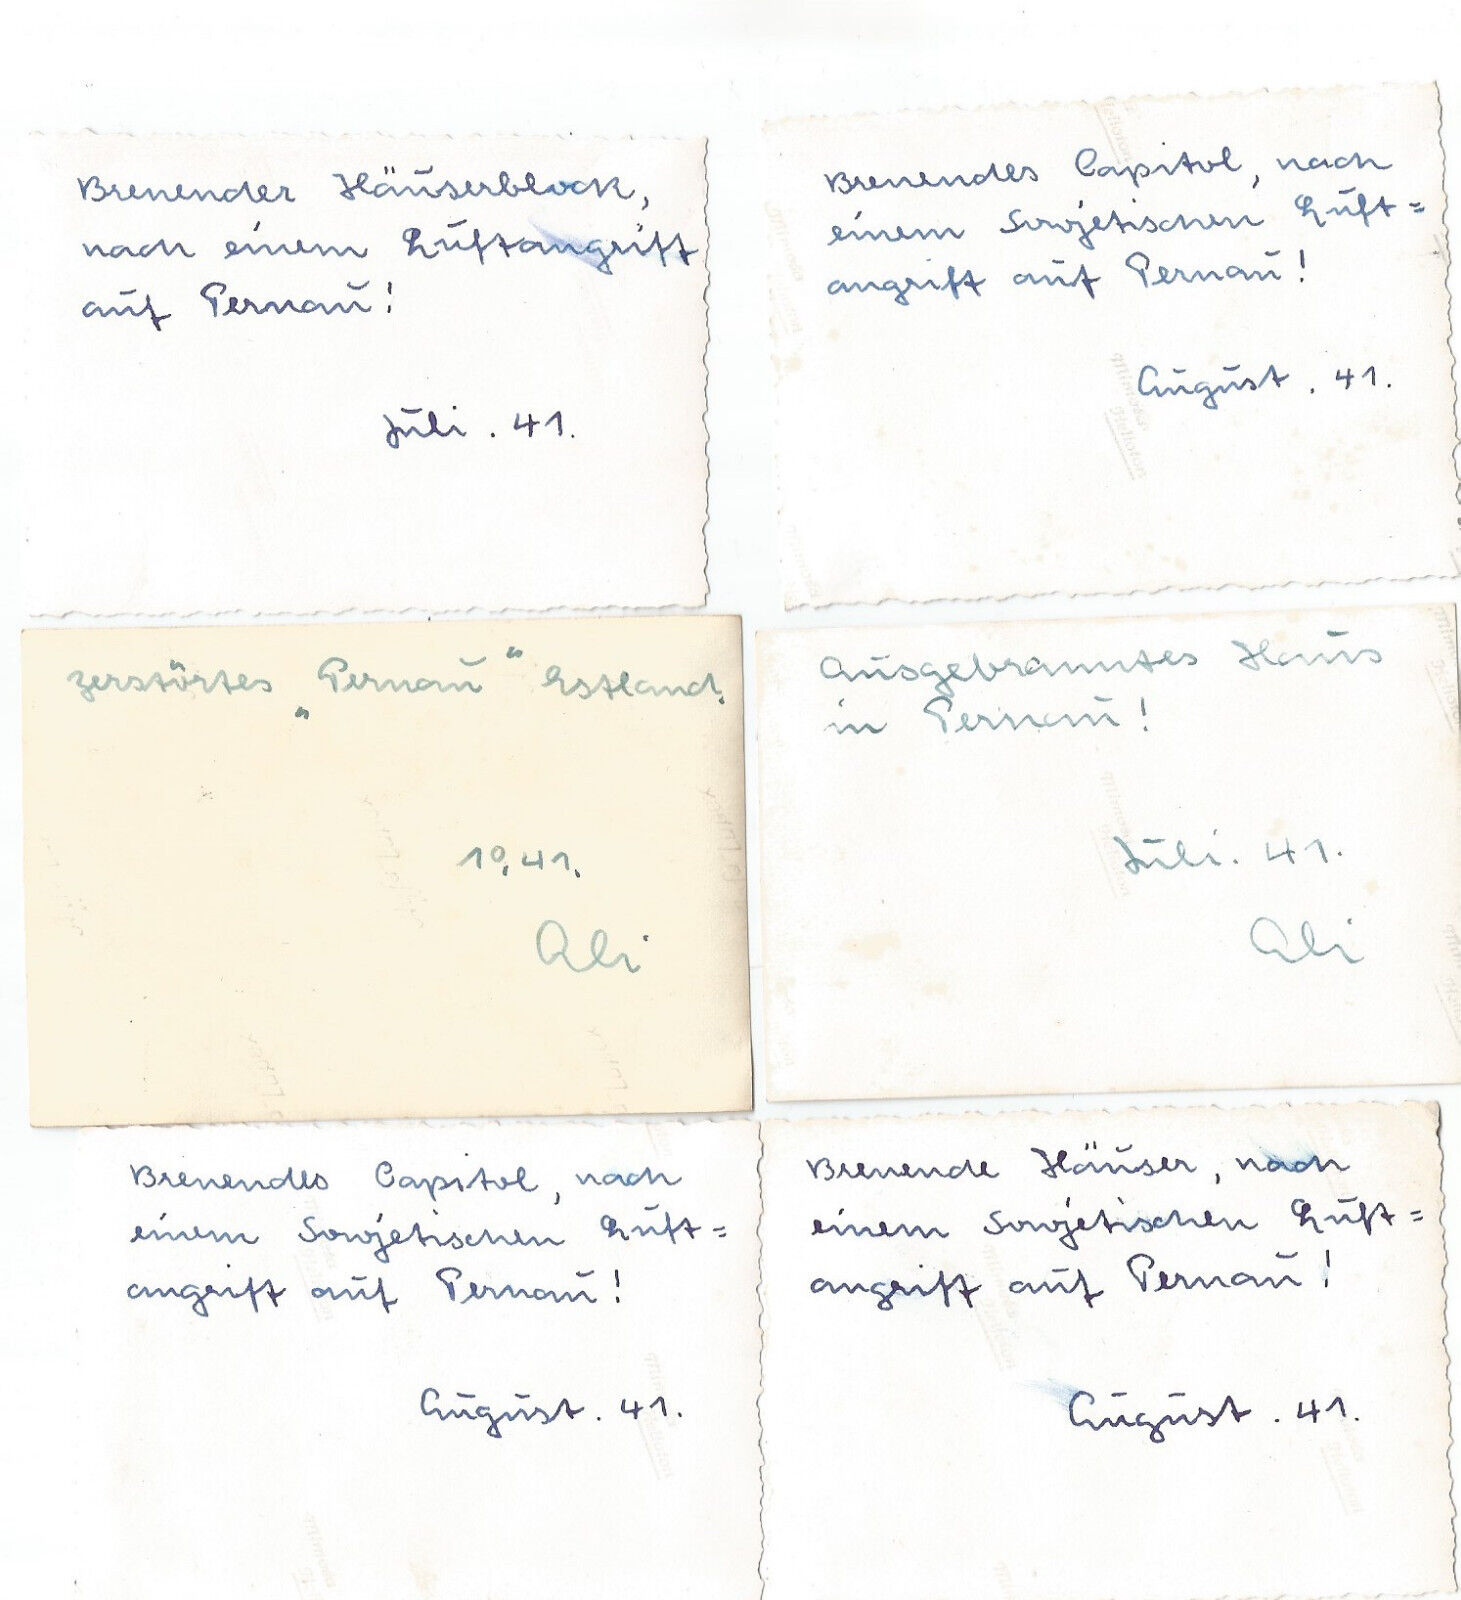 Brenender Häuserblock,
nach einem Luftangrift
auf Pernau!
Juli . 41.
Brenendes Capitol, nach
einem Sowjetischen Luft=
angrift auf Pernau!
August . 41.
zerstörtes „Pernau“ Estland.
10. 41.
Ali
Ausgebranntes Haus
in Pernau!
Juli. 41.
Ali
Brenendes Capitol, nach
einem Sowjetischen Luft=
angrift auf Pernau!
August. 41.
Brenende Häuser, nach
einem Sowjetischen Luft=
angrift auf Pernau!
August . 41.
Mimosa